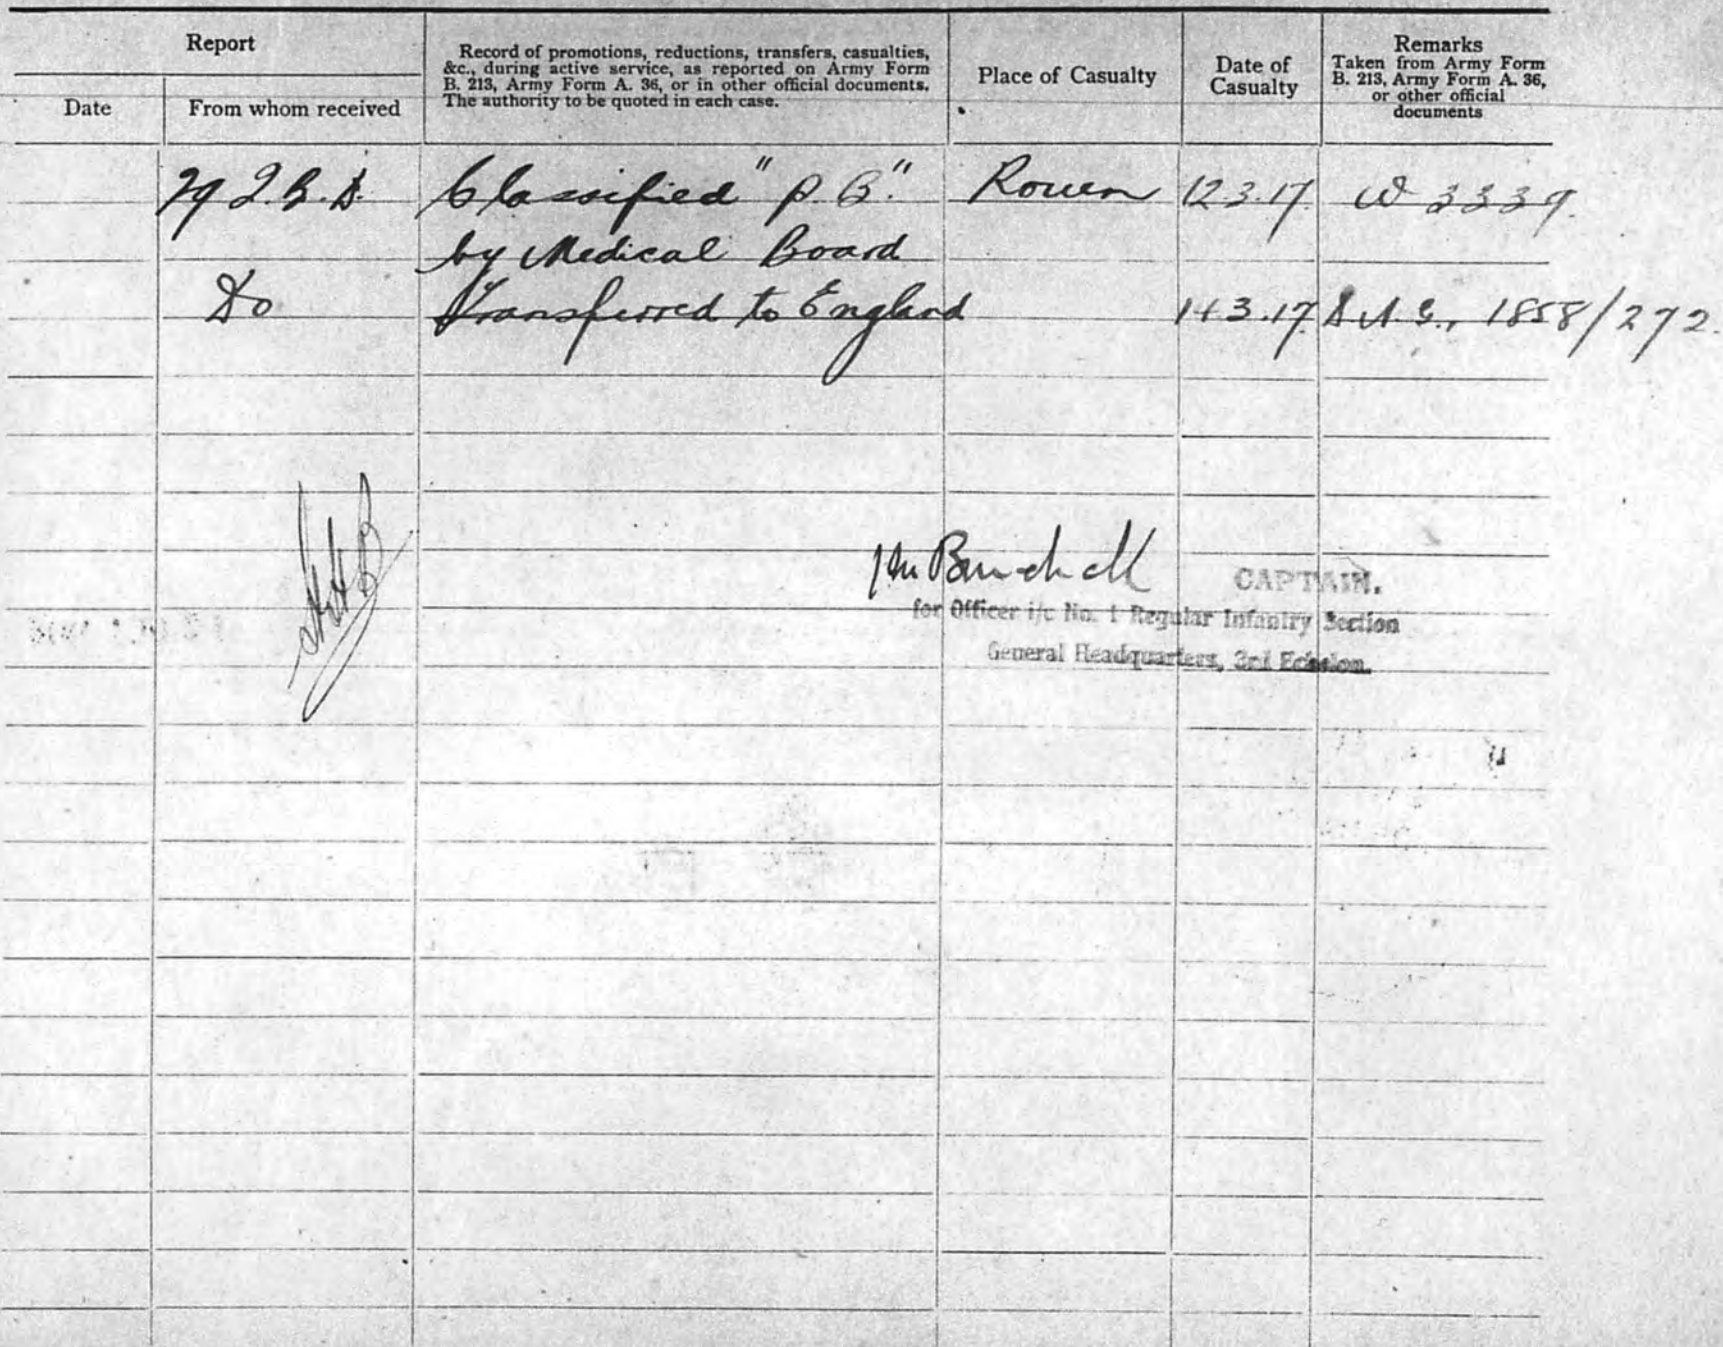 Report
Record of promotions, reductions, transfers, casualties,
&c., during active service, as reported on Army Form
B. 213, Army Form A. 36, or in other official documents.
The authority to be quoted in each case.
Place of Casualty
Date of
Casualty
Remarks
Taken from Army Form
B. 213, Army Form A. 36,
or other official
documents
Date
From whom received
29 I.B.D. Classified "P.B." Rouen 12.3.17. W 3339.
by Medical Board
Do Transferred to England 14.3.17 1858/272.
CAPTAIN.
for Officer i/c No. 1 Regular Infantry Section
General Headquarters, 3rd Echelon.